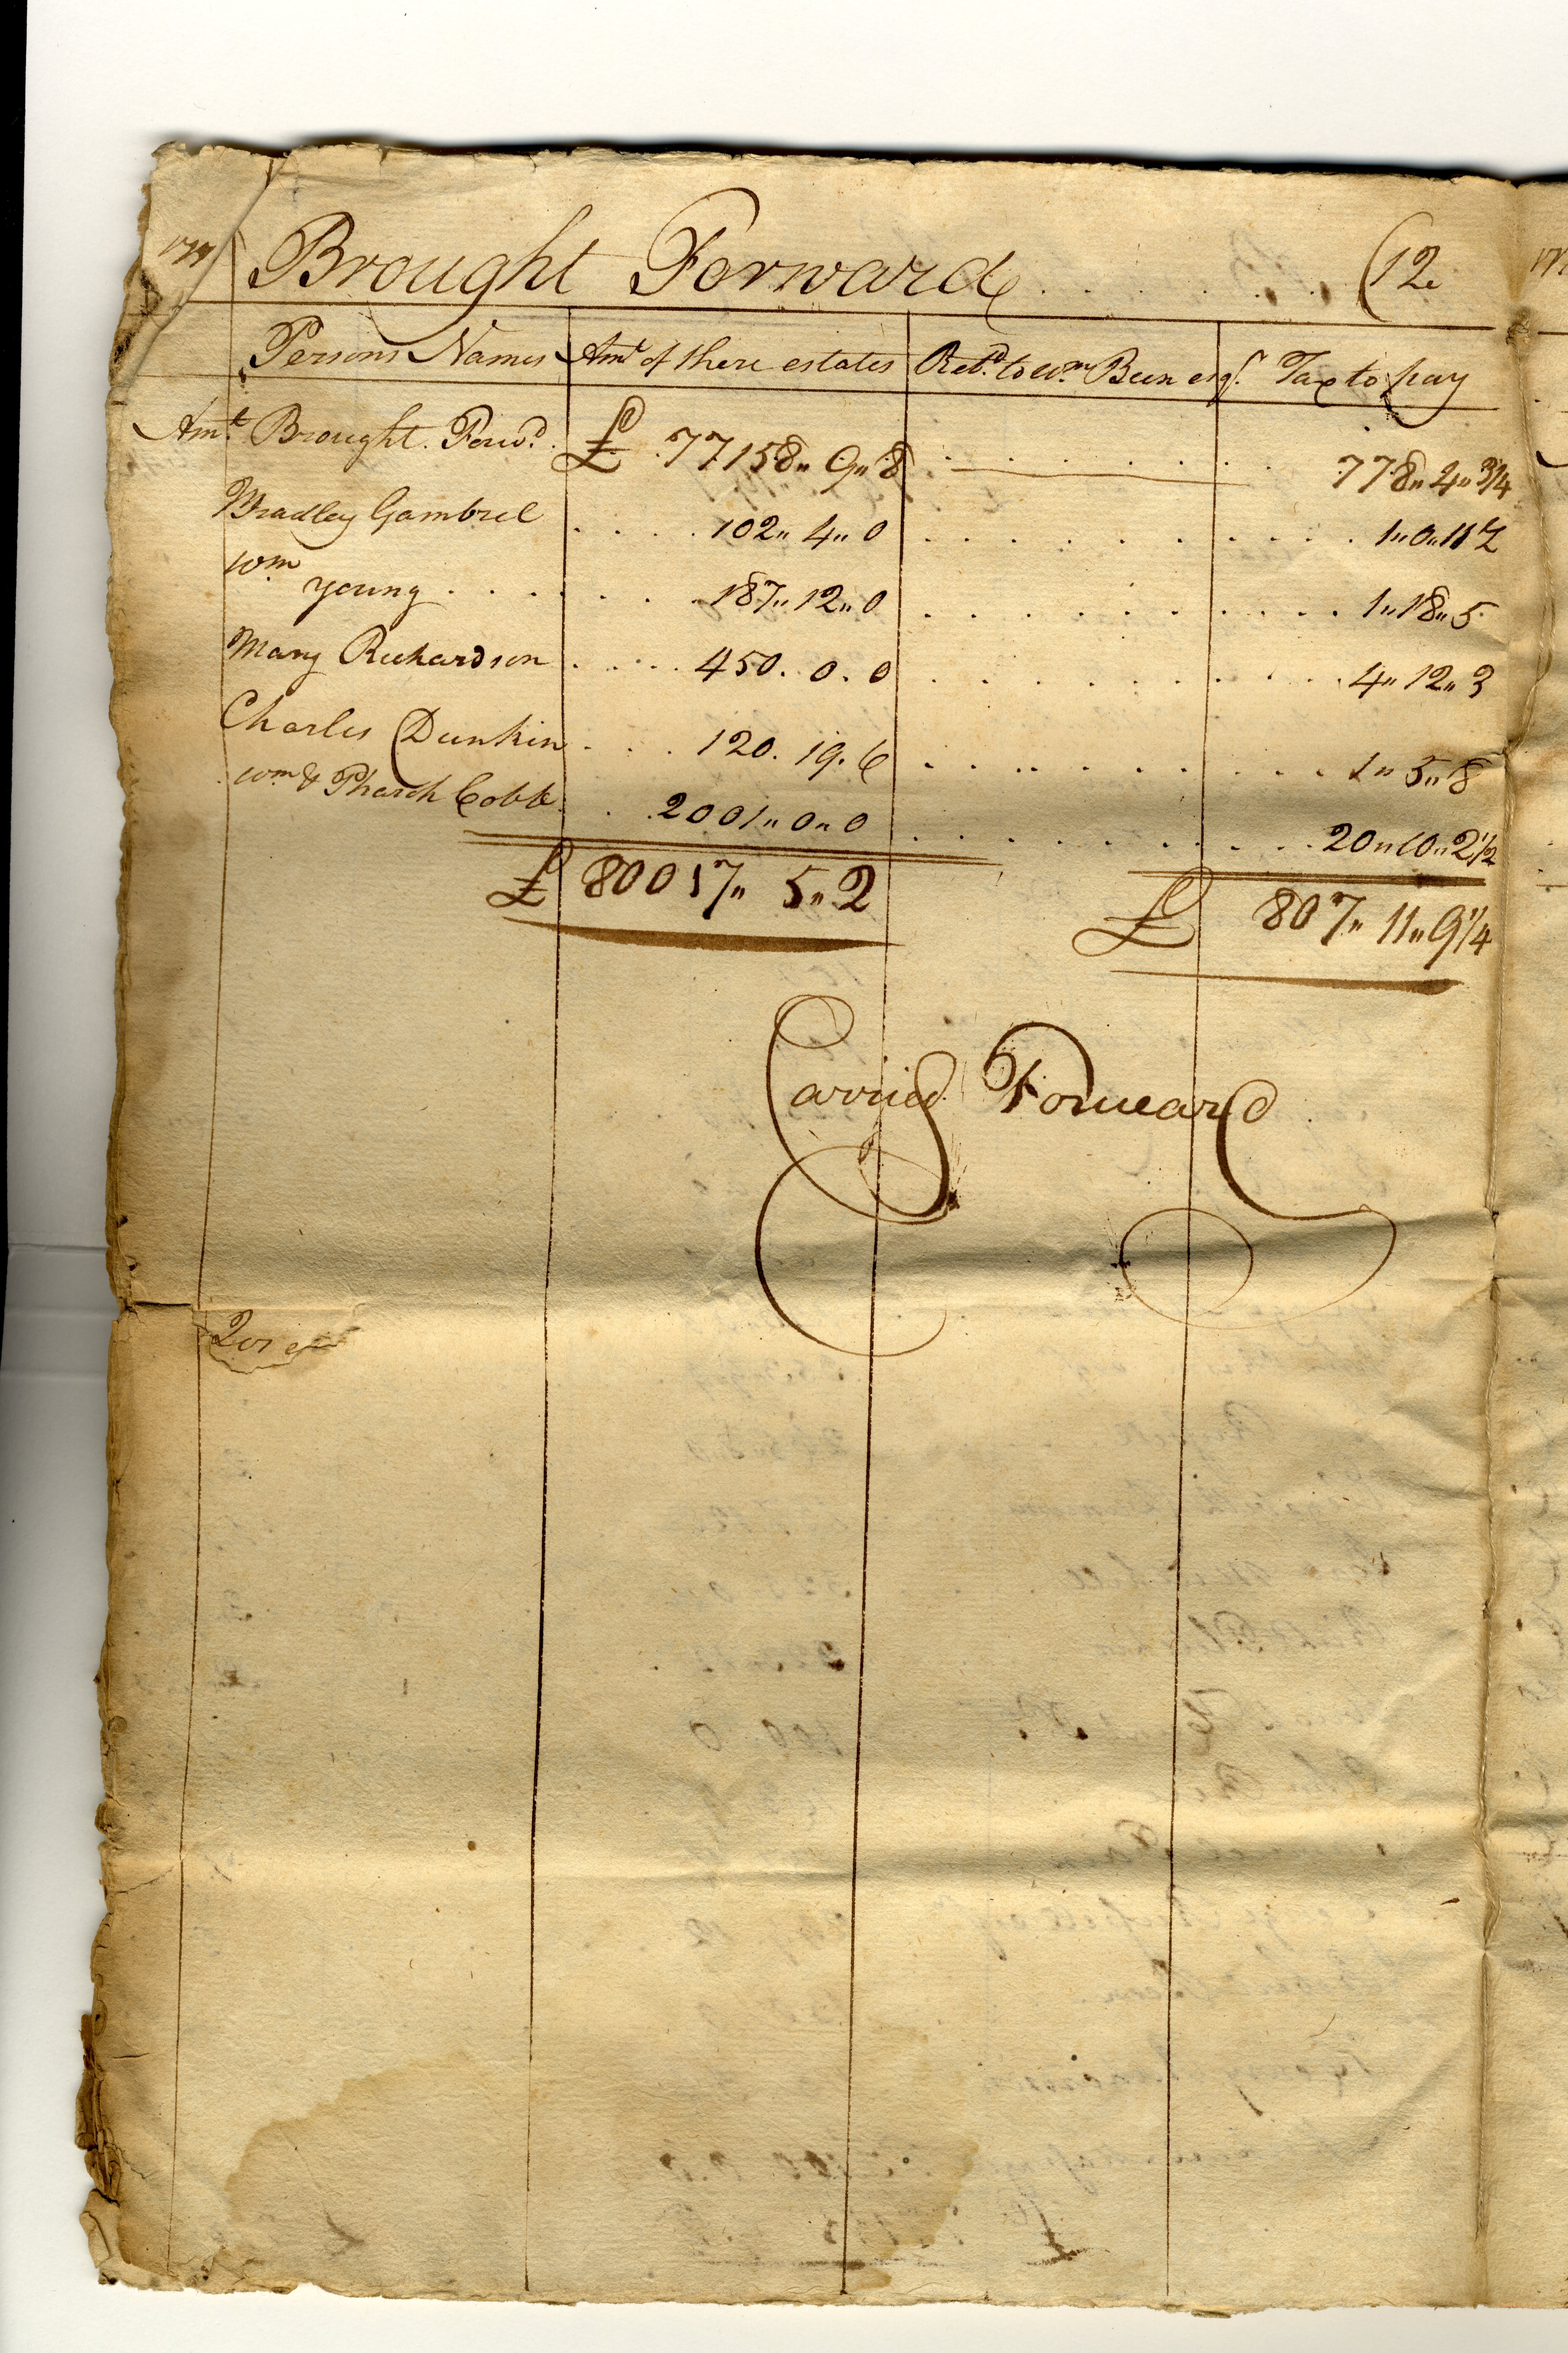 Brought Forward . . . . . . . (12
Persons Names Amt of there estates Retd. to Wm. Been esqr. Tax to pay
Amt. Brought. Forwd. £ 77158" 9" 8 778" 4" 3/4
Bradley Gambrel 102" 4" 0 1" 0" 11
Wm Young 187" 12" 0 1" 18" 5
Mary Richardson 450. 0. 0 4" 12" 3
Charles Dunkin 120. 19. 6 1" 5" 8
Wm & Pharoh Cobb 2001" 0" 0 20" 10" 2 1/2
£ 80017" 5" 2 £ 807" 11" 9 1/4
Carried Forward